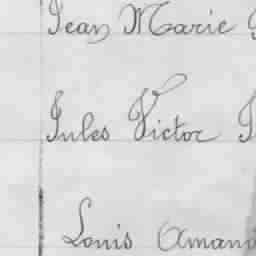 Jean Marie
Jules Victor
Louis Aman